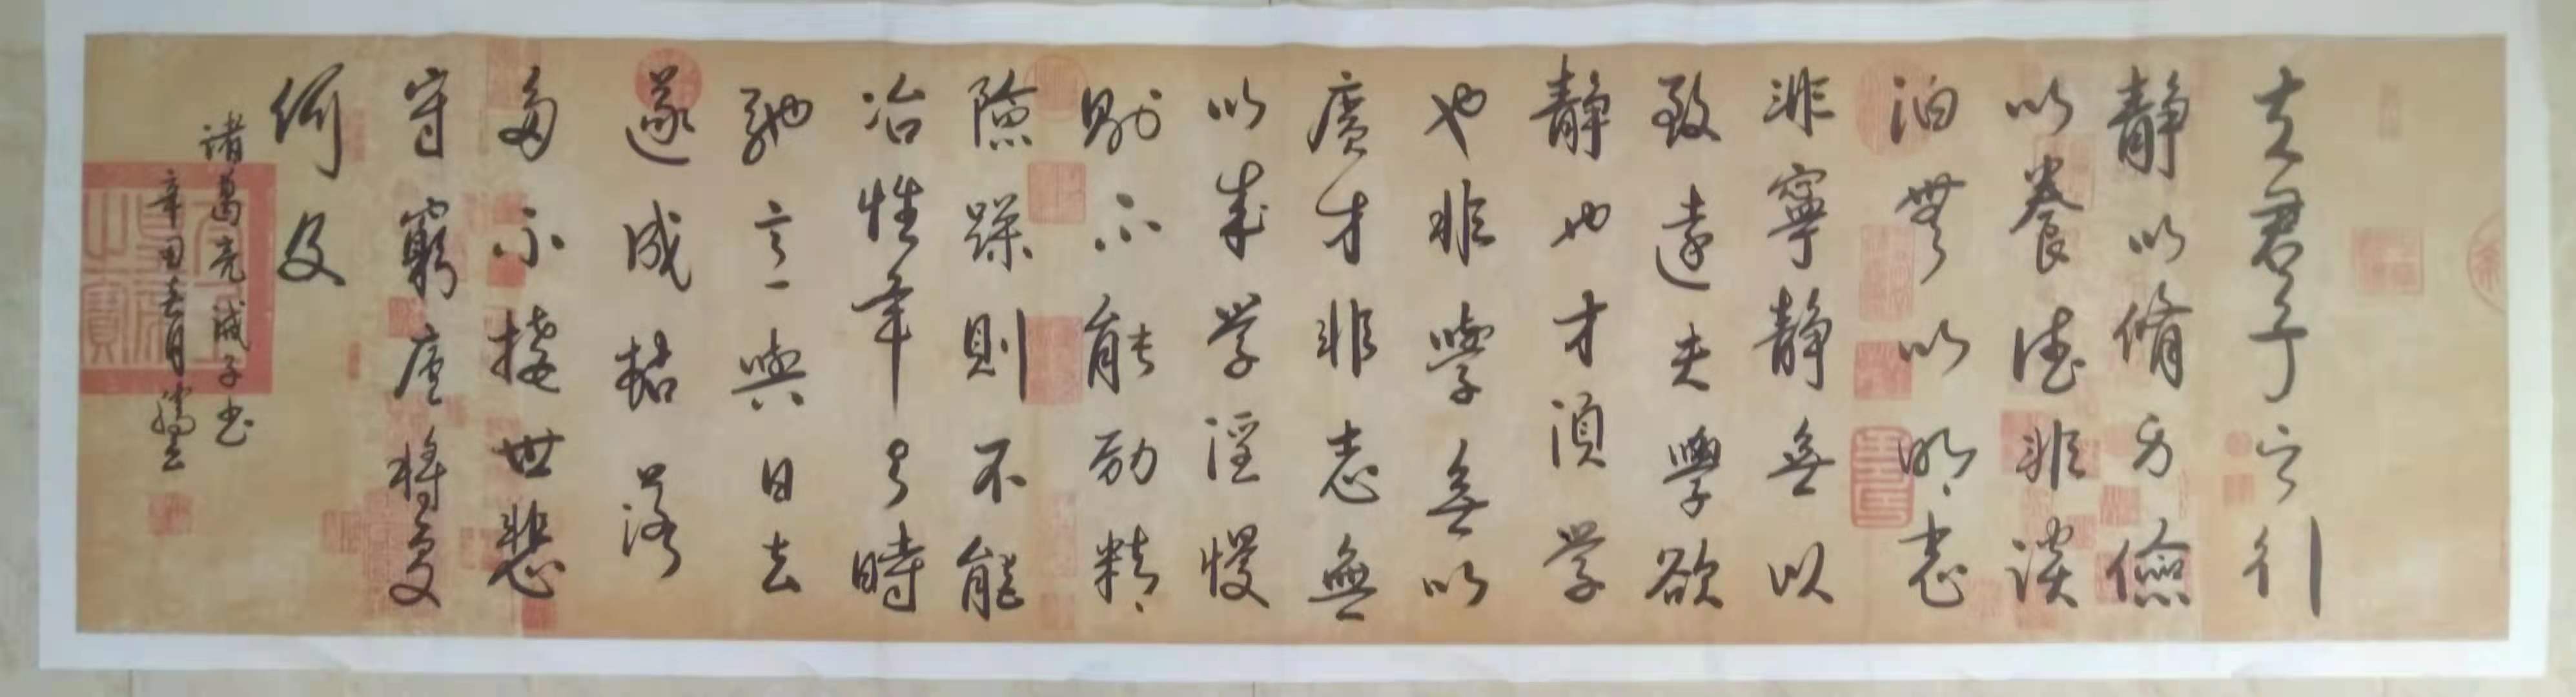 夫君子之行
静以脩身儉
以養德非淡
泊無以明志
非寧静無以
致遠夫學欲
静也才須学
也非學無以
廣才非志無
以成学淫慢
則不能励精
險躁則不能
冶性年与時
馳意與日去
遂成枯落
多不接世悲
守窮廬將復
何及
諸葛亮诫子书
辛丑春月